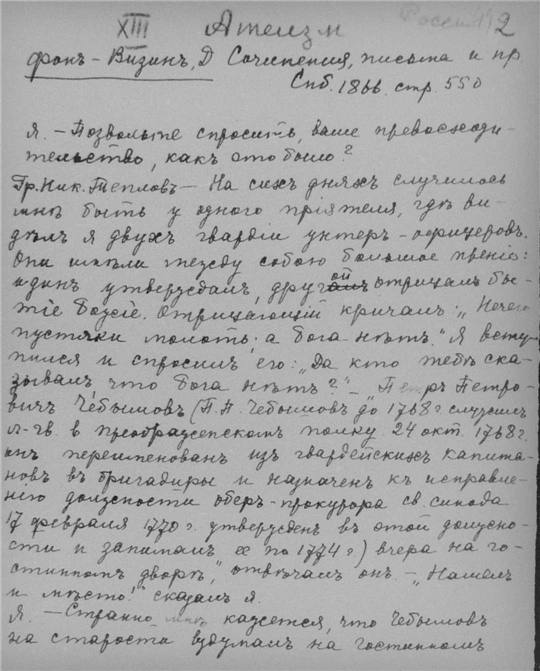 XIII Атеизм 2
фонъ-Визинъ, Д Сочинения, письма и пр
Спб. 1866. стр. 550
Я. – Позвольте спросить, ваше превосходи-
тельство, какъ это было?
Гр. Ник. Тепловъ – На сихъ дняхъ случилось
мнѣ быть у одного пріятеля, гдѣ ви-
дѣлъ я двухъ гвардіи унтер-офицеровъ.
Они имѣли между собою большое преніе:
одинъ утверждалъ, другой отрицалъ бы-
тіе Божіе. Отрицающій кричалъ: „Нечего
пустяки молоть; а бога нѣтъ." Я всту-
пился и спросилъ его: „Да кто тебѣ ска-
зывалъ что бога нѣтъ?" – „Петръ Петро-
вичъ Чебышовъ (П.П. Чебышовъ до 1768 г. служилъ
л-гв. в преображенскомъ полку. 24 окт. 1768 г.
онъ переименован изъ гвардейскихъ капита-
новъ въ бригадиры и назначен къ исправле-
нію должности оберъ-прокурора св. синода
17 февраля 1770 г. утвержден въ этой должно-
сти и занималъ ее по 1774 г) вчера на го-
стинномъ дворѣ", отвѣчалъ онъ. – „Нашелъ
и мѣсто!" сказалъ я.
Я. – Странно мнѣ кажется, что Чебышовъ
на старости вздумалъ на гостинномъ